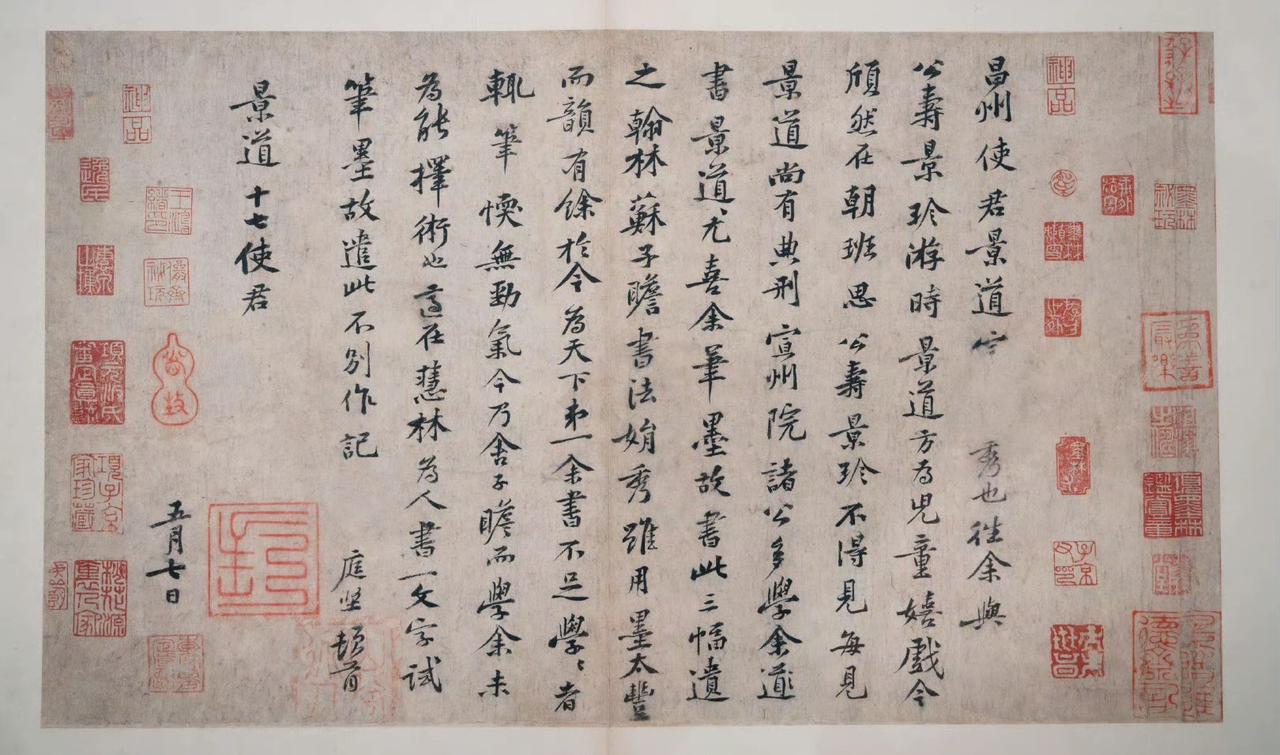 昌州使君景道 秀也往余與
公壽景珍游時景道方為兒童嬉戲今
頎然在朝班思公壽景珍不得見每見
景道尚有典刑宣州院諸公多學余道
書景道尤喜余筆墨故書此三幅遺
之翰林蘇子瞻書法娟秀雖用墨太豐
而韻有餘於今為天下第一余書不足學〻者
輒筆愞無勁氣今乃舍子瞻而學余未
為能擇術也適在慧林為人書一文字試
筆墨故遣此不別作記
庭堅頓首
景道十七使君
五月七日
神品
神品
項元汴氏審定真蹟
項子京家珍藏